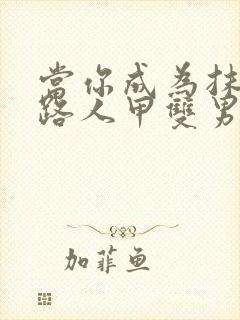 當你成為抹
路人甲雙男
加菲鱼